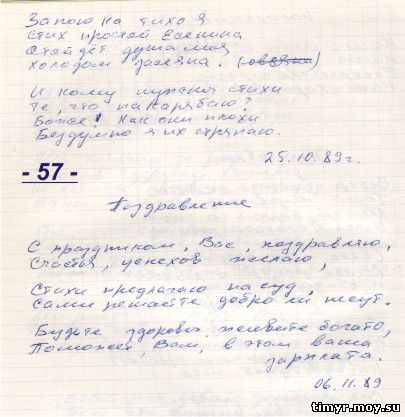 Запою ка тихо я
Стих простой Есенина
Отойдёт душа моя
Холодом засеяна. (овеяна)
И кому нужны стихи
Те, что накарябаю?
Боже! Как они плохи
Бездумно я их стряпаю.
25.10.89г.
- 57 -
Поздравление
С праздником, Вас, поздравляю,
Счастья, успехов желаю,
Стихи предлагаю на суд,
Сами решайте добро ли несут.
Будьте здоровы, живите богато,
Поможет, Вам, в этом ваша
зарплата.
06.11.89
timyr.moy.su